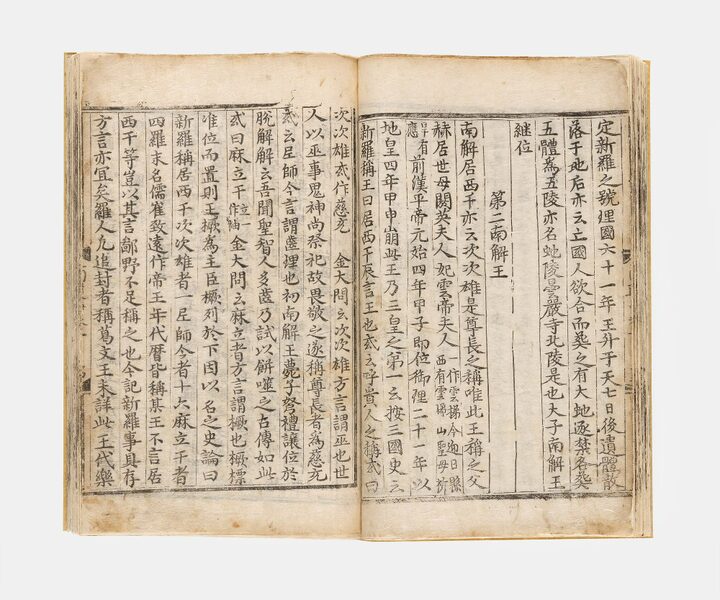 定新羅之號理國六十一年王升于天七日後遺體散
落于地后亦云亡國人欲合而葬之有大虵逐禁各葬
五體為五陵亦名虵陵曇嚴寺北陵是也大子南解王
継位
第二南解王
南解居西干亦云次次雄是尊長之稱唯此王稱之父
赫居世母閼英夫人妃雲帝夫人一作雲梯今迎日縣西有雲梯山聖母祈
旱有應前漢平帝元始四年甲子即位御理二十一年以
地皇四年甲申崩此王乃三皇之第一云按三國史云
新羅稱王曰居西干辰言王也或云呼貴人之稱或曰
次次雄或作慈充 金大問云次次雄方言謂巫也世
人以巫事鬼神尚祭祀故畏敬之遂稱尊長者為慈充
或云尼師今言謂齒理也初南解王薨子弩禮讓位於
脫解解云吾聞聖智人多齒乃試以餅噬之古傳如此
或曰麻立干立一作袖金大問云麻立者方言謂橛也橛標
准位而置則王橛為主臣橛列於下因以名之史論曰
新羅稱居西干次次雄者一尼師今者十六麻立干者
四羅末名儒崔致遠作帝王年代曆皆稱某王不言居
西干等豈以其言鄙野不足稱之也今記新羅事具存
方言亦宜矣羅人凡追封者稱葛文王未詳此王代樂